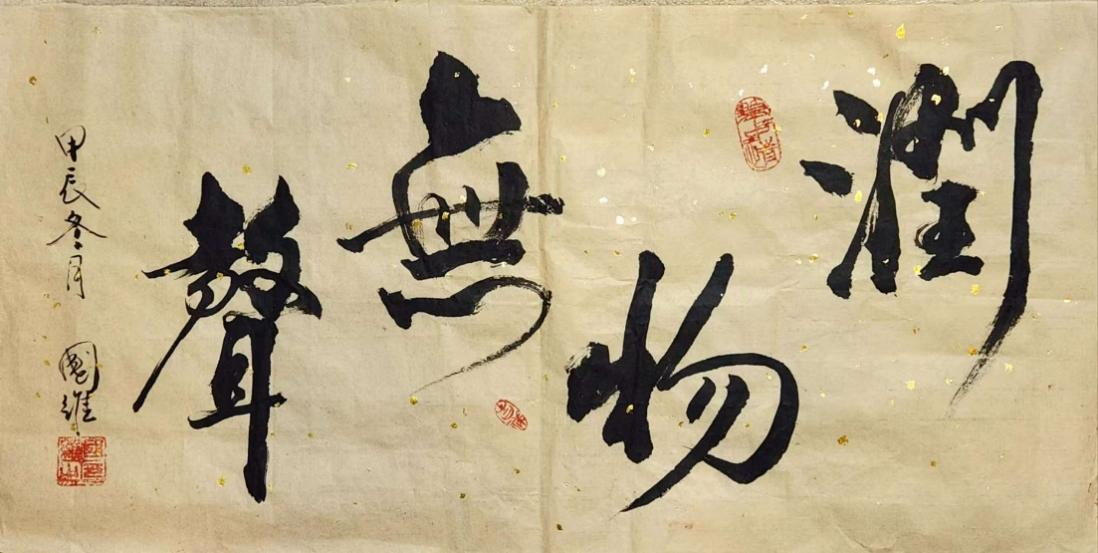 潤物無聲
甲辰冬月
國維